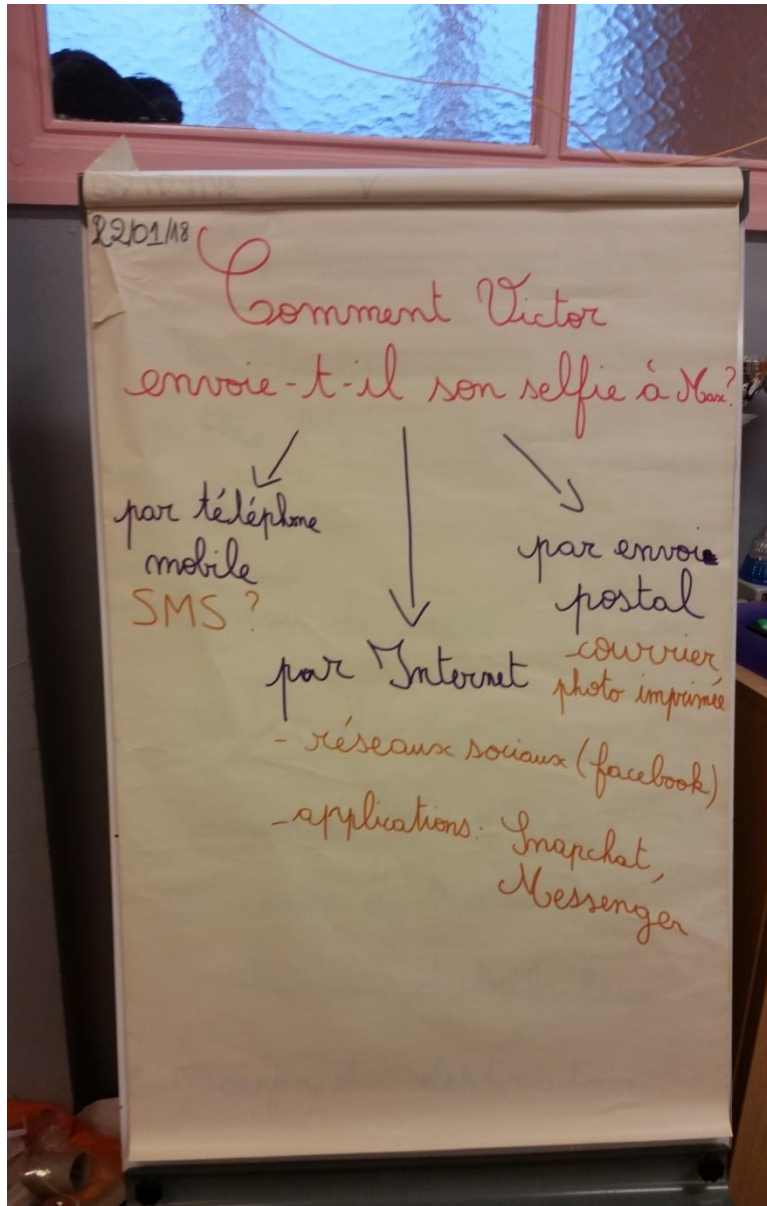 22/01/18
Comment Victor
envoie-t-il son selfie à Max?
par téléphone
mobile
SMS ?
par Internet
- réseaux sociaux (facebook)
- applications: Snapchat,
Messenger
par envoi
postal
- courrier
photo imprimée